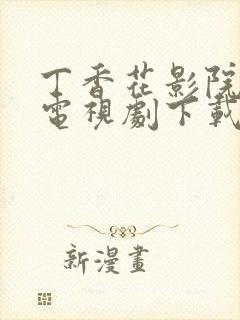 丁香花影院
電視劇下載
新漫畫